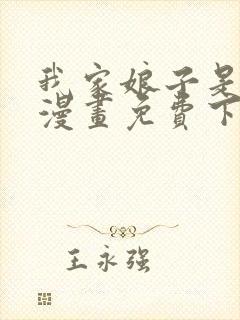 我家娘子是
漫畫免費下
王永强